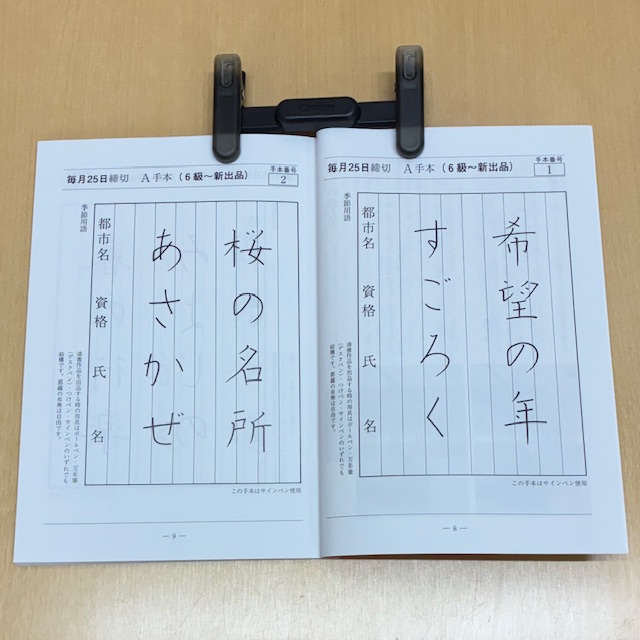 毎月25日締切 A手本(6級〜新出品)
手本番号
1
希望の年
すごろく
都市名 資格 氏 名
季節用語
清書作品を出品する時の用具はボールペン・万年筆
(デスクペン)・つけペン・サインペンのいずれでも
結構です。罫線の有無は自由です。
この手本はサインペン使用
— 8 —
毎月25日締切 A手本(6級〜新出品)
手本番号
2
桜の名所
あさかぜ
都市名 資格 氏 名
季節用語
清書作品を出品する時の用具はボールペン・万年筆
(デスクペン)・つけペン・サインペンのいずれでも
結構です。罫線の有無は自由です。
この手本はサインペン使用
— 9 —